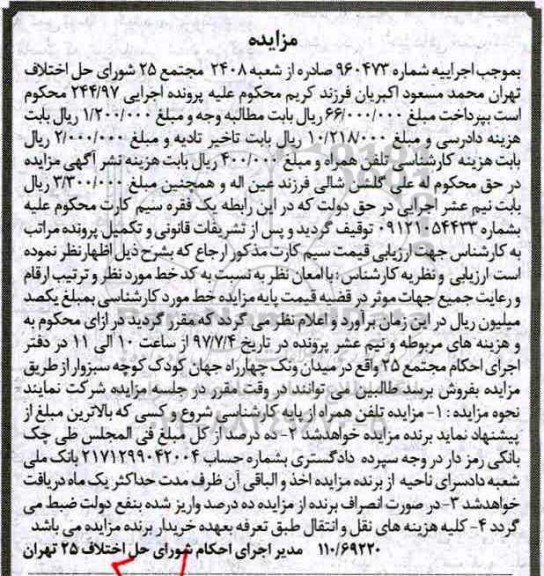 مزایده
بموجب اجراییه شماره ۹۶۰۴۷۳ صادره از شعبه ۲۴۰۸ مجتمع ۲۵ شورای حل اختلاف
تهران محمد مسعود اکبریان فرزند کریم محکوم علیه پرونده اجرایی ۲۴۴/۹۷ محکوم
است بپرداخت مبلغ ۶۶/۰۰۰/۰۰۰ ریال بابت مطالبه وجه و مبلغ ۱/۲۰۰/۰۰۰ ریال بابت
هزینه دادرسی و مبلغ ۱۰/۲۱۸/۰۰۰ ریال بابت تاخیر تادیه و مبلغ ۲/۰۰۰/۰۰۰ ریال
بابت هزینه کارشناسی تلفن همراه و مبلغ ۴۰۰/۰۰۰ ریال بابت هزینه نشر آگهی مزایده
در حق محکوم له علی گلشن شالی فرزند عین اله و همچنین مبلغ ۳/۳۰۰/۰۰۰ ریال
بابت نیم عشر اجرایی در حق دولت که در این رابطه یک فقره سیم کارت محکوم علیه
بشماره ۰۹۱۲۱۰۵۴۴۳۳ توقیف گردید و پس از تشریفات قانونی و تکمیل پرونده مراتب
به کارشناس جهت ارزیابی قیمت سیم کارت مذکور ارجاع که بشرح ذیل اظهار نظر نموده
است ارزیابی و نظریه کارشناس : با امعان نظر به نسبت به کد خط مورد نظر و ترتیب ارقام
و رعایت جمیع جهات موثر در قضیه قیمت پایه مزایده خط مورد کارشناسی بمبلغ یکصد
میلیون ریال در این زمان برآورد و اعلام نظر می گردد که مقرر گردید در ازای محکوم به
و هزینه های مربوطه و نیم عشر پرونده در تاریخ ۹۷/۷/۴ از ساعت ۱۰ الی ۱۱ در دفتر
اجرای احکام مجتمع ۲۵ واقع در میدان ونک چهارراه جهان کودک کوچه سبزوار از طریق
مزایده بفروش برسد طالبین می توانند در وقت مقرر در جلسه مزایده شرکت نمایند
نحوه مزایده : ۱- مزایده تلفن همراه از پایه کارشناسی شروع و کسی که بالاترین مبلغ از
پیشنهاد نماید برنده مزایده خواهدشد ۲- ده درصد از کل مبلغ فی المجلس طی چک
بانکی رمز دار در وجه سپرده دادگستری بشماره حساب ۲۱۷۱۲۹۹۰۴۲۰۰۴ بانک ملی
شعبه دادسرای ناحیه از برنده مزایده اخذ و الباقی آن ظرف مدت حداکثر یک ماه دریافت
خواهدشد ۳- در صورت انصراف برنده از مزایده ده درصد واریز شده بنفع دولت ضبط می
گردد ۴- کلیه هزینه های نقل و انتقال طبق تعرفه بعهده خریدار برنده مزایده می باشد
۱۱۰/۶۹۲۲۰ مدیر اجرای احکام شورای حل اختلاف ۲۵ تهران